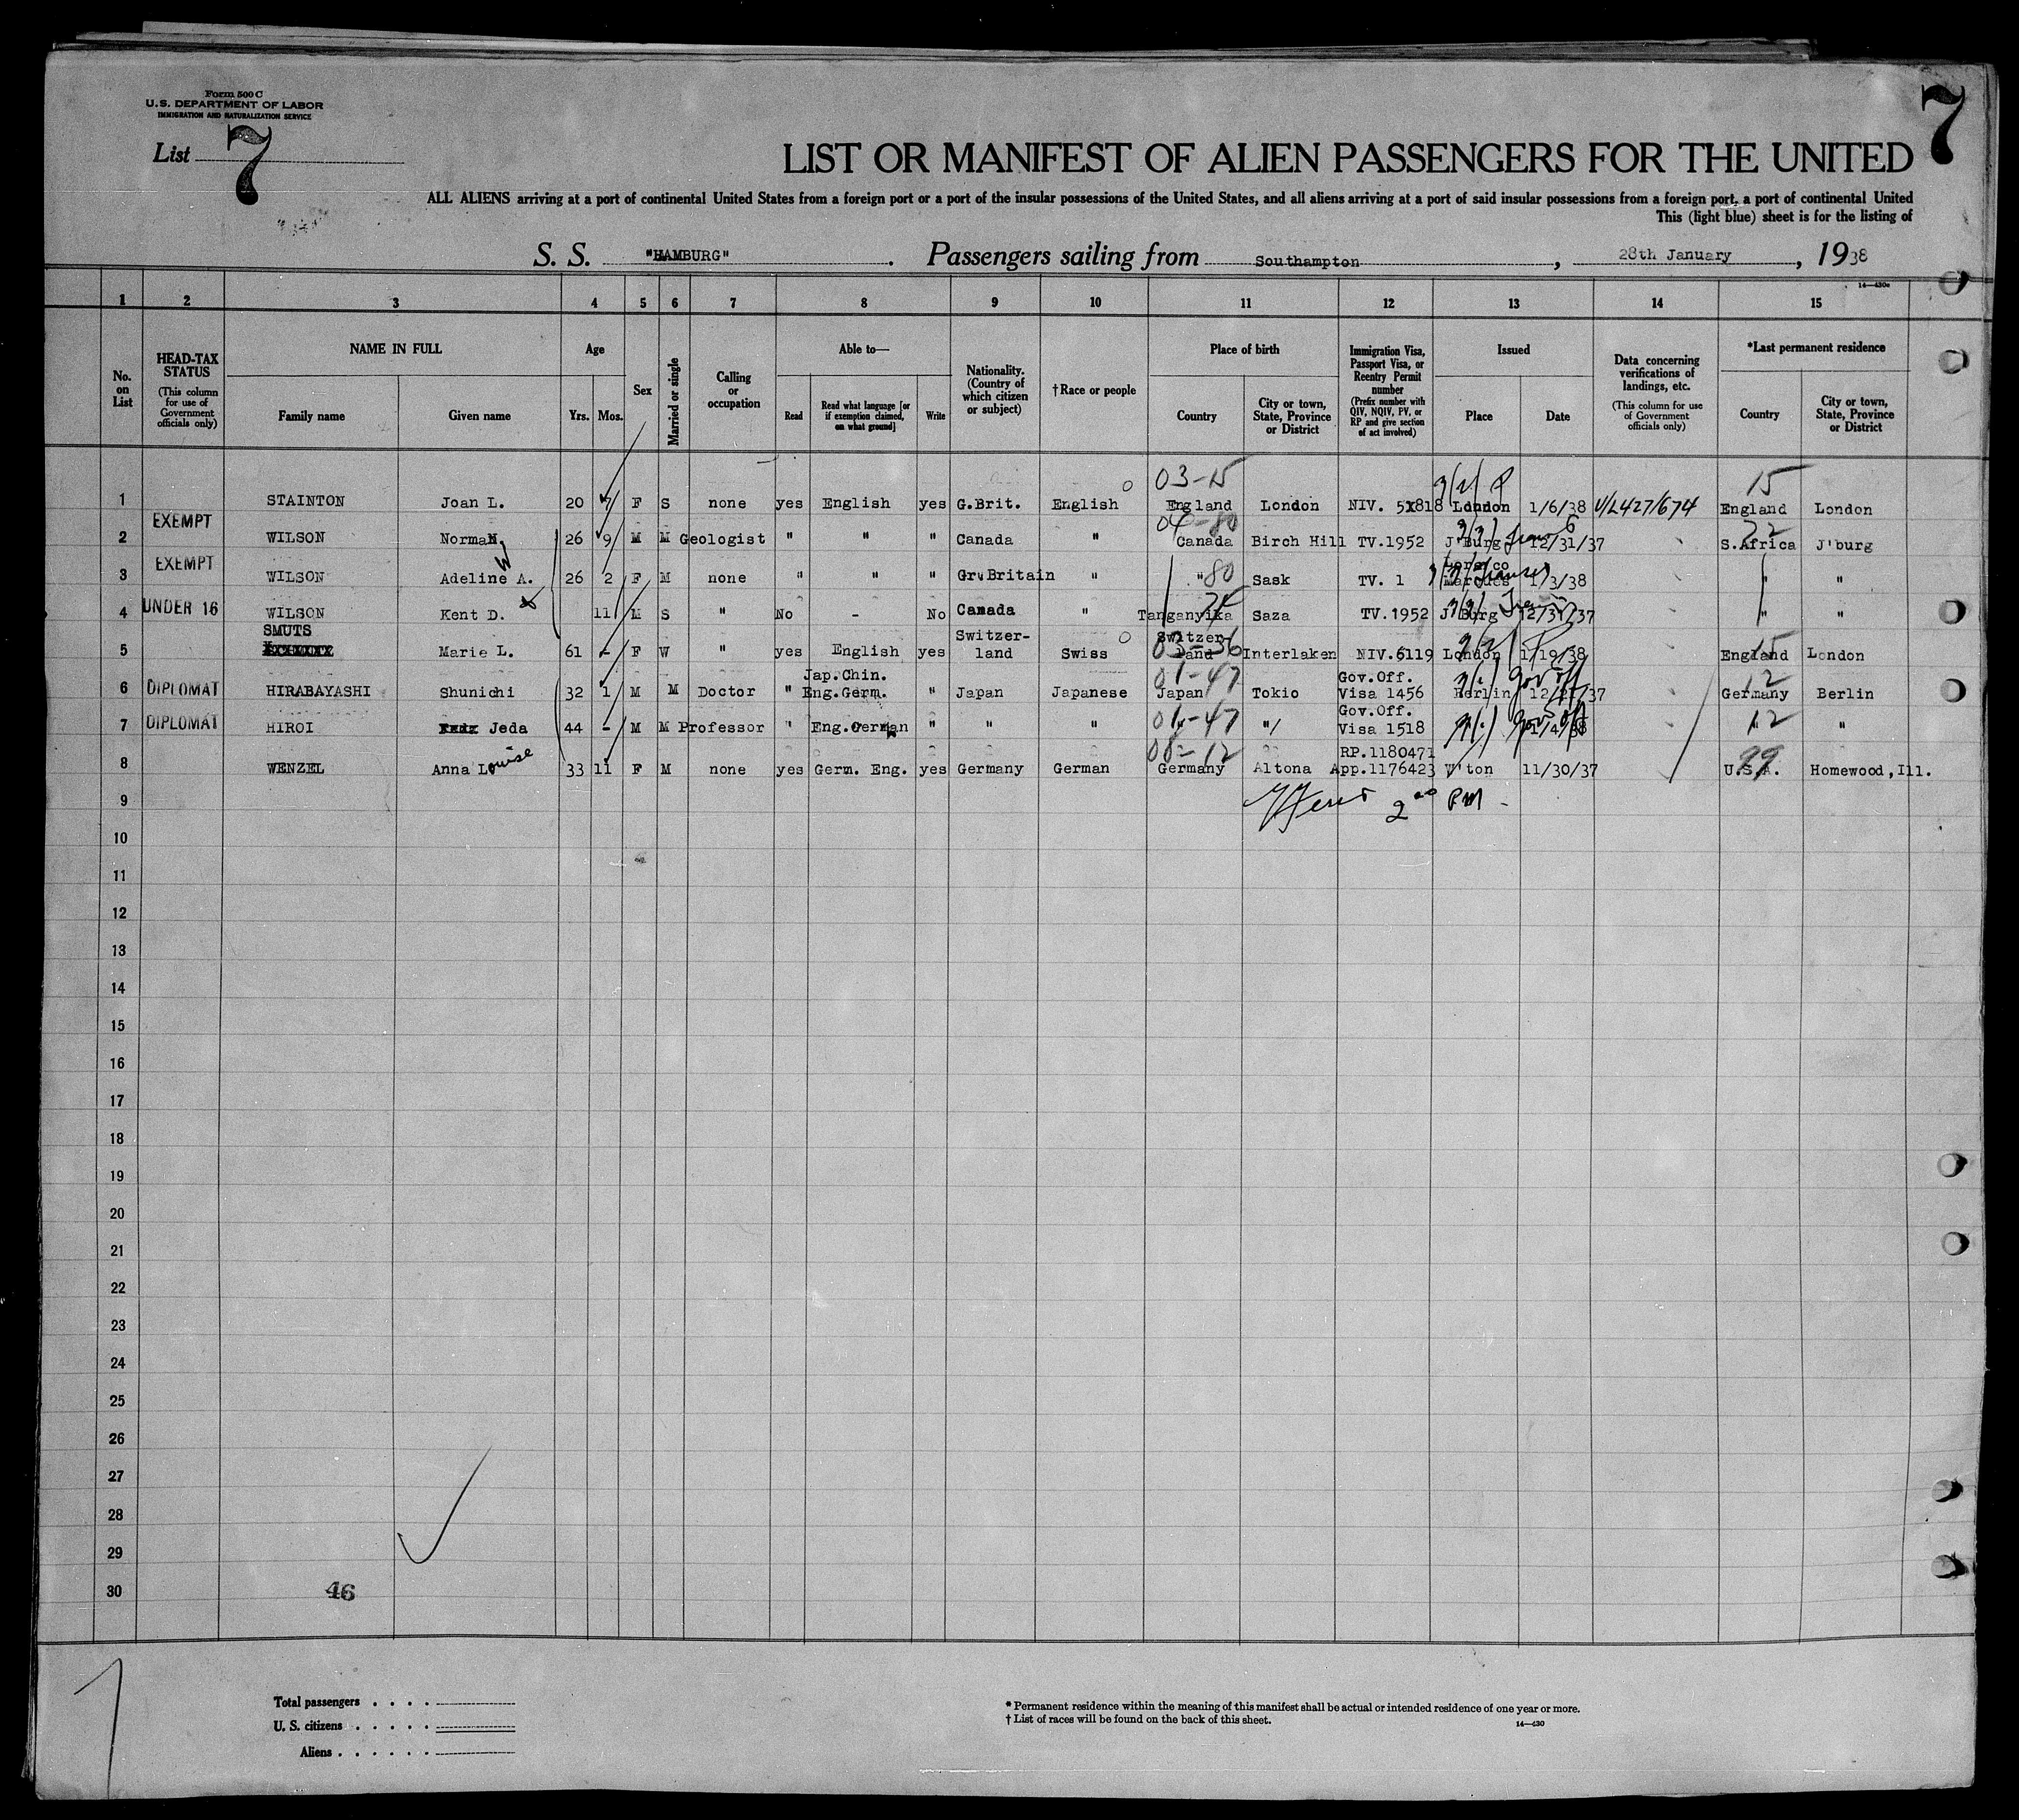 Form 500 C
U.S. DEPARTMENT OF LABOR
IMMIGRATION AND NATURALIZATION SERVICE
List 7
7
LIST OR MANIFEST OF ALIEN PASSENGERS FOR THE UNITED
ALL ALIENS arriving at a port of continental United States from a foreign port or a port of the insular possessions of the United States, and all aliens arriving at a port of said insular possessions from a foreign port, a port of continental United
This (light blue) sheet is for the listing of
S. S. "HAMBURG" . Passengers sailing from Southampton , 28th January , 1938
14—430c
1 2 3 4 5 6 7 8 9 10 11 12 13 14 15
No. on List
HEAD-TAX STATUS (This column for use of Government officials only)
NAME IN FULL Family name Given name
Age Yrs. Mos.
Sex
Married or single
Calling or occupation
Able to— Read Read what language [or if exemption claimed, on what ground] Write
Nationality. (Country of which citizen or subject)
†Race or people
Place of birth Country City or town, State, Province or District
Immigration Visa, Passport Visa, or Reentry Permit number (Prefix number with QIV, NQIV, PV, or RP and give section of act involved)
Issued Place Date
Data concerning verifications of landings, etc. (This column for use of Government officials only)
*Last permanent residence Country City or town, State, Province or District
03-15 3/2/ P 15
1 STAINTON Joan L. 20 7 F S none yes English yes G.Brit. English England London NIV. 5x818 London 1/6/38 V/L427/674 England London
04-80 22
2 EXEMPT WILSON Norman 26 9 M M Geologist " " " Canada " Canada Birch Hill TV.1952 J'Burg 12/31/37 S.Africa J'burg
3 EXEMPT WILSON Adeline A. W 26 2 F M none " " " Gr.Britain " " 80 Sask TV. 1 Marques 1/3/38 " "
4 UNDER 16 WILSON Kent D. 11 M S " No - No Canada " Tanganyika Saza TV.1952 J'Burg 12/31/37 " "
5 SMUTS Marie L. 61 - F W " yes English yes Switzer-land Swiss Switzer-land 03-36 Interlaken NIV.6119 London 1/19/38 15 England London
6 DIPLOMAT HIRABAYASHI Shunichi 32 1 M M Doctor " Jap.Chin. Eng.Germ. " Japan Japanese 01-47 Japan Tokio Gov.Off. Visa 1456 Berlin Gov Off 12/21/37 12 Germany Berlin
7 DIPLOMAT HIROI Jeda 44 - M M Professor " Eng.German " " " 01-47 " "/ Gov.Off. Visa 1518 Gov Off 1/4/38 12 " "
8 WENZEL Anna Louise 33 11 F M none yes Germ. Eng. yes Germany German 08-12 Germany Altona RP.1180471 App.1176423 W'ton 11/30/37 99 U.S.A. Homewood, Ill.
9 2 00 PM -
10
11
12
13
14
15
16
17
18
19
20
21
22
23
24
25
26
27
28
29
30 46
Total passengers . . . .
U. S. citizens . . . . .
Aliens . . . . . .
* Permanent residence within the meaning of this manifest shall be actual or intended residence of one year or more.
† List of races will be found on the back of this sheet.
14—430